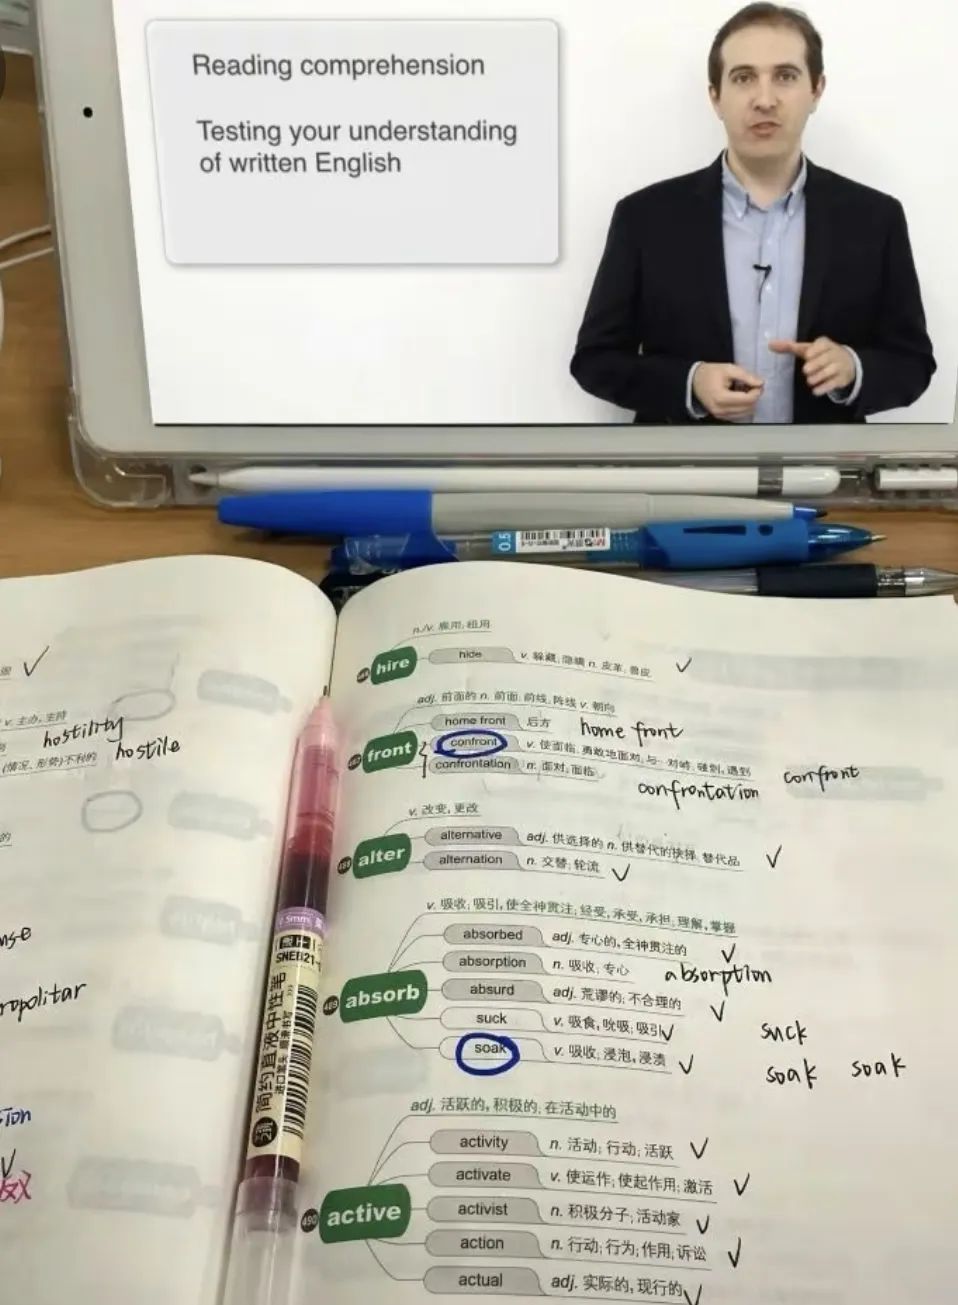 Reading comprehension
Testing your understanding
of written English
0.5
v. 主办, 主持
hostility
(情况、形势)不利的 hostile
的
ropolitar
sion
n./v. 雇用; 租用
hire
hide v. 躲藏; 隐瞒 n. 皮革, 兽皮
adj. 前面的 n. 前面; 前线, 阵线 v. 朝向
home front 后方 home front
487 front
confront v. 使面临; 勇敢地面对; 与…对峙; 碰到, 遇到 confront
confrontation n. 面对; 面临 confrontation
v. 改变, 更改
488 alter
alternative adj. 供选择的 n. 供替代的抉择; 替代品
alternation n. 交替; 轮流
v. 吸收; 吸引, 使全神贯注; 经受, 承受, 承担; 理解, 掌握
absorbed adj. 专心的, 全神贯注的
absorption n. 吸收; 专心 absorption
489 absorb
absurd adj. 荒谬的; 不合理的
suck v. 吸食, 吮吸; 吸引 suck
soak v. 吸收; 浸泡, 浸渍 soak soak
adj. 活跃的, 积极的; 在活动中的
activity n. 活动; 行动; 活跃
activate v. 使运作; 使起作用; 激活
490 active
activist n. 积极分子; 活动家
action n. 行动; 行为; 作用; 诉讼
actual adj. 实际的, 现行的
简约直液中性笔